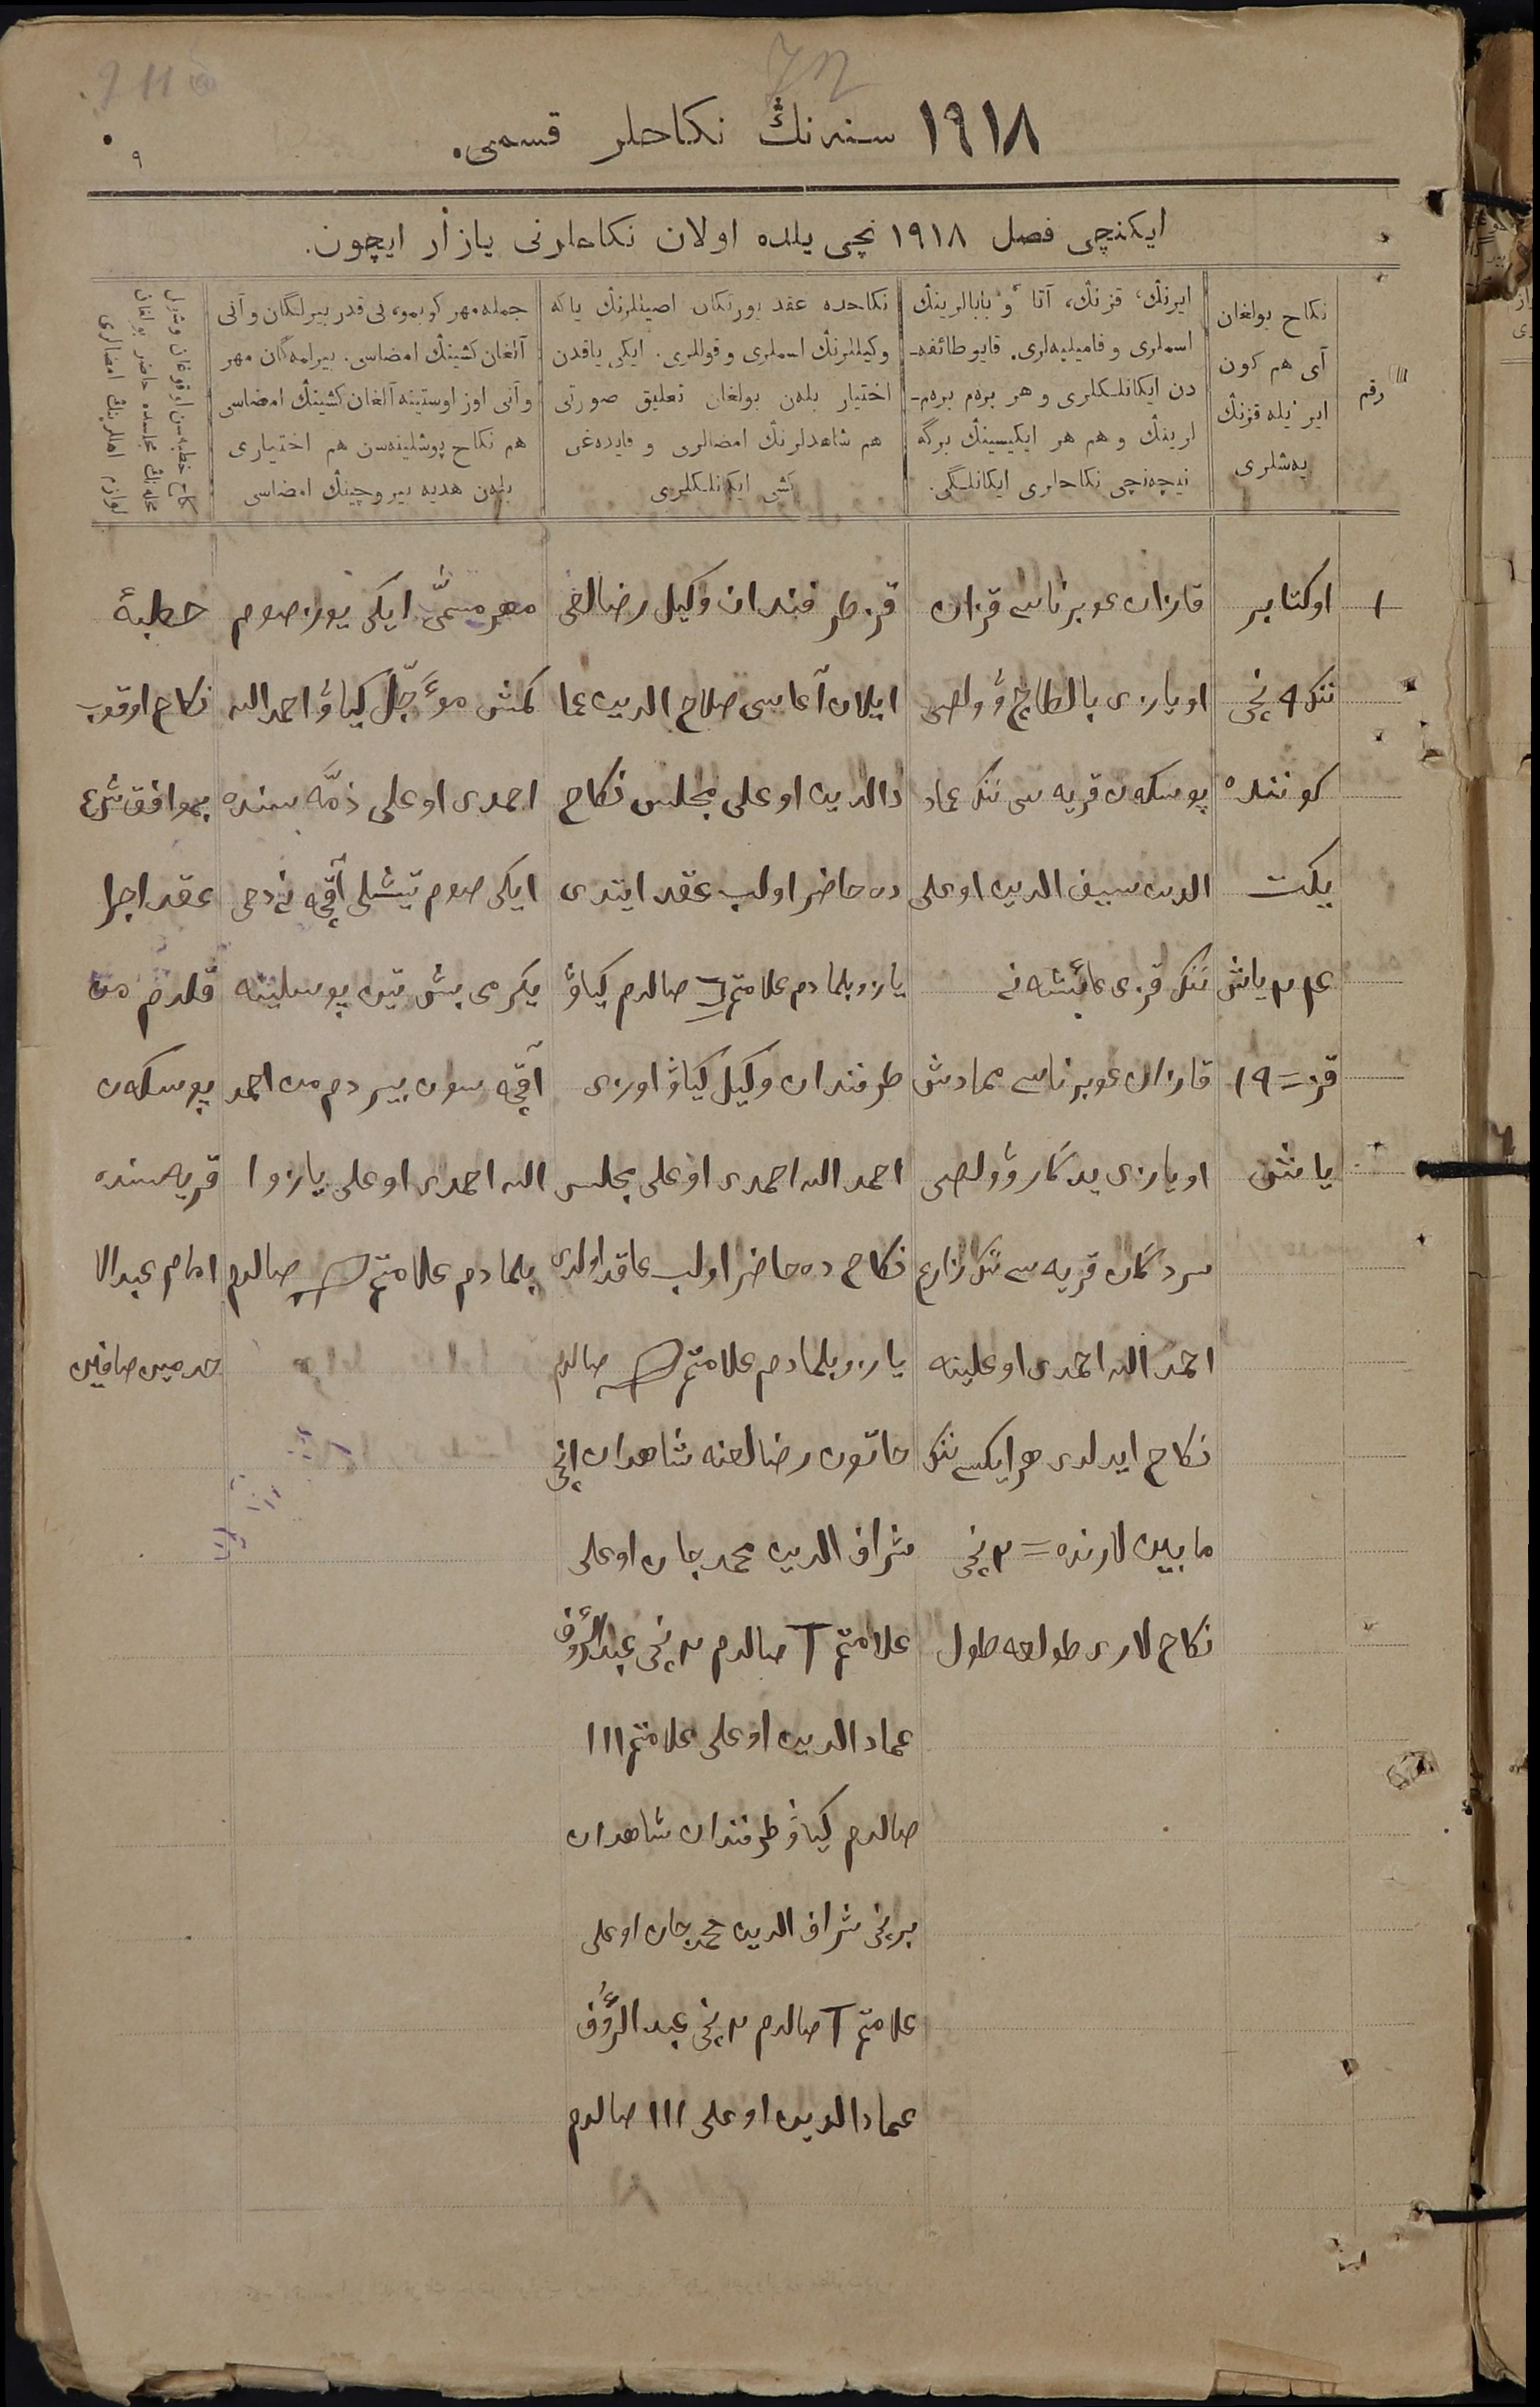 ١٩١٨ سنه نڭ نكاحلر قسمی.
٩
ايكنچی فصل ١٩١٨ نچی يلده اولان نكاحلرنی يازار ايچون.
رقم
نكاح بولغان
آی هم كون
اير ئيله قزنڭ
يەشلری
ايرنڭ، قزنڭ، آتا و بابالرينڭ
اسملری و فاميليەلری. قايو طائفه-
دن ايكانلكلری و هر برەم برەم-
لرينڭ و هم هر ايكيسينڭ برگه
نيچەنچی نكاحلری ايكانلگی.
نكاحده عقد يورتكان اصيللرنڭ ياكه
وكيللرنڭ اسملری و قوللری. ايكی ياقدن
اختيار بلەن بولغان تعليق صورتی
هم شاهدلرنڭ امضالری و فايدەغی
كشی ايكانلكلری
جمله مهر كوبموء نی قدر بيرلگان و آنی
آلغان كشينڭ امضاسی. بيرلمەگان مهر
و آنی اوز اوستينه آلغان كشينڭ امضاسی
هم نكاح پوشلينەسن هم اختياری
بلەن هديه بيروچينڭ امضاسی
نكاح خطبەسن اوقوغان و شول
مجلسده حاضر بولغان
١
اوكتابر
ننك ٩ نچی
كوننده
يكت
٢٤ ياش
قز = ١٩
ياش
قازان غوبرناسی قزان
اويازی بالطاچ ؤولصی
پوسكەن قريه سی ننك عماد
الدين سيف الدين اوغلی
ننك قزی عائشه نی
قازان غوبرناسی ممادش
اويازی ؤولصی
قريه سی ننك زارع
احمد الله احمدی اوغلينه
نكاح ايدلدی هر ايكسی ننك
ما بين لارنده = ٢ نچی
نكاح لاری طولغه طول
قز طرفندان وكيل رضالغی
ايلان آغاسی صلاح الدين عما
دالدين اوغلی مجلس نكاح
ده حاضر اولب عقد ايتدی
يازو بلمادم علامتم صالدم كياؤ
طرفندان وكيل كياؤ اوزی
احمد الله احمدی اوغلی مجلس
نكاح ده حاضر اولب عاقد اولدی
يازو بلمادم علامتم صالدم
خاتون رضالغنه شاهدان انچی
شراف الدين محمد جان اوغلی
علامتم T صالدم ٢ نچی عبدالرؤف
عماد الدين اوغلی علامتم ااا
صالدم كياؤ طرفندان شاهدان
برنچی شراف الدين محمد جان اوغلی
علامتم T صالدم ٢ نچی عبد الرؤف
عماد الدين اوغلی ااا صالدم
مهر مسمّی ايكی يوز صوم
كمش مؤجّل كياؤ احمد الله
احمدی اوغلی ذمّه سنده
ايكی صوم تيشلی آقچه
يكرمی بش تين پوسلينه
آقچه سون بيردم من احمد
الله احمدی اوغلی يازو
بلمادم علامتم صالدم
خطبهٔ
نكاح اوقوب
بموافق شرع
عقد اجرا
قلدم من
پوسكەن
قريه سنده
امام عبدالا
حد مبين صافين